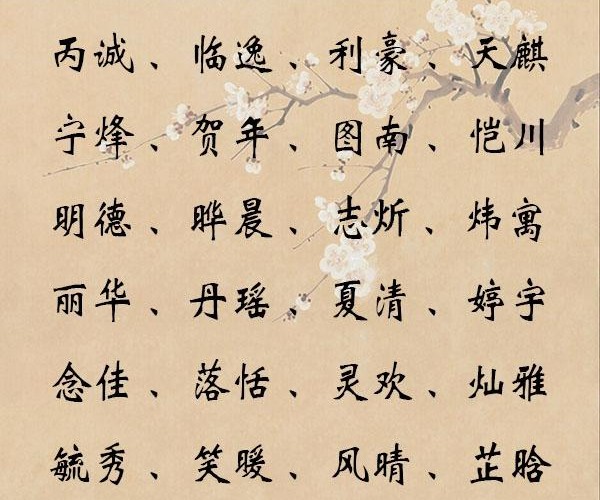 丙诚、临逸、利豪、天麒
宁烽、贺年、图南、恺川
明德、晔晨、志炘、炜寓
丽华、丹瑶、夏清、婷宇
念佳、落恬、灵欢、灿雅
毓秀、笑暖、风晴、芷晗